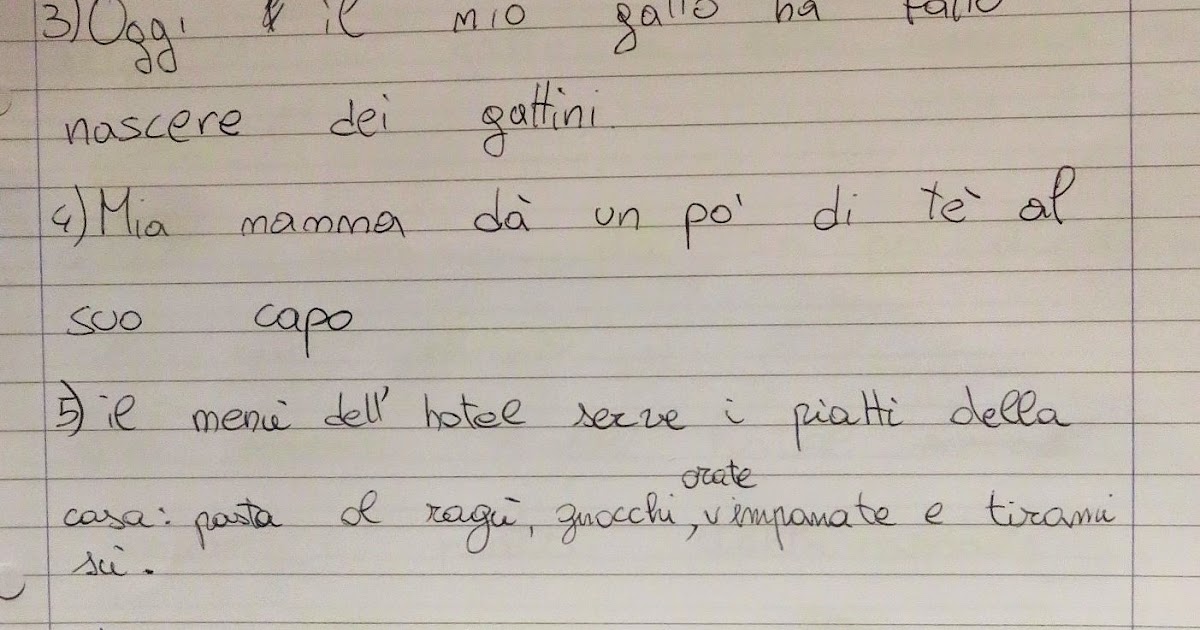 3) Oggi il mio gatto ha fatto
nascere dei gattini.
4) Mia mamma dà un po' di tè al
suo capo
5) il menù dell'hotel serve i piatti della
orate
casa: pasta al ragù, gnocchi, impanate e tirami
sù.